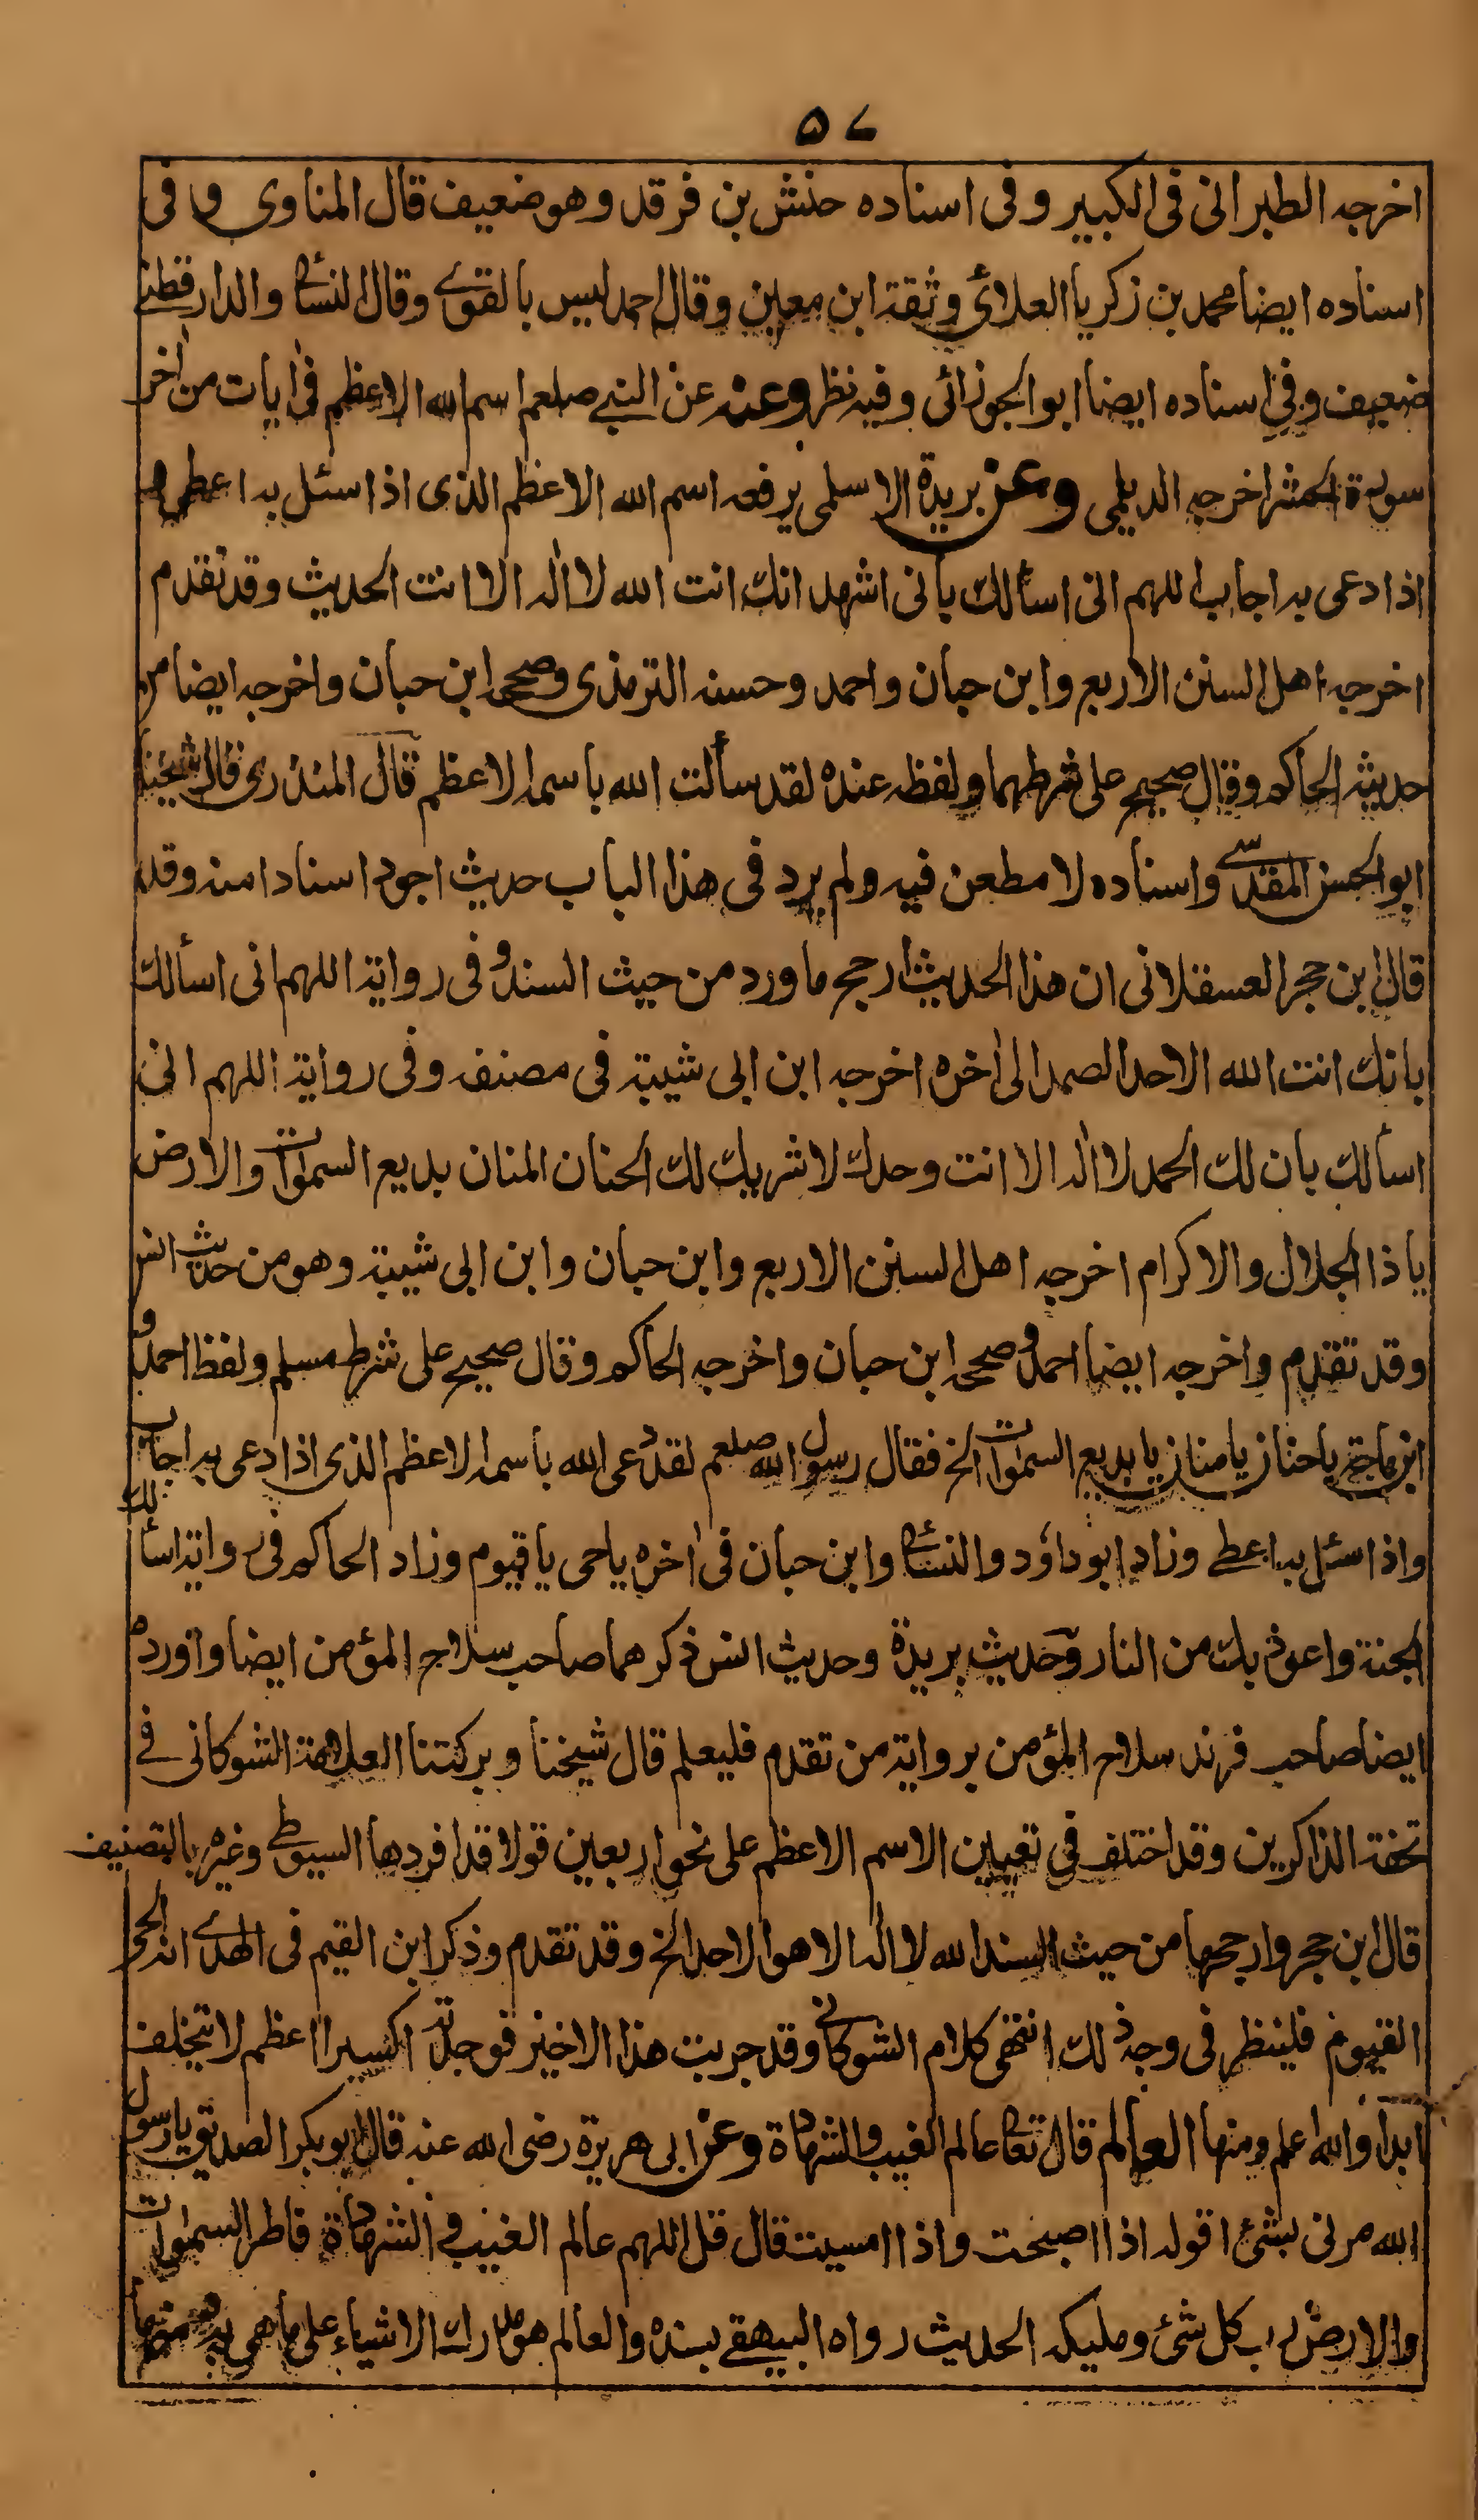 ۵۷
اخرجه الطبرانى فى الكبير وفى اسناده حنش بن فرقد وهو ضعيف قال المناوى وفى
اسناده ايضا محمد بن زكريا العلائى وثقة ابن معين وقال احمد ليس بالقوے وقال النسائى والدارقطنے
ضعيف وفى اسناده ايضا ابو الجوزائى وفيه نظر وعنه عن النبے صلعم اسم الله الاعظم فى اٰيات من اٰخر
سورة الحشر اخرجه الديلمى وعن بريدة الاسلمى يرفعه اسم الله الاعظم الذى اذا سئل به اعطى و
اذا دعى به اجاب اللهم انى اسألك بأنى اشهد انك انت الله لا الٰه الا انت الحديث وقد تقدم
اخرجه اهل السنن الاربع وابن حبان واحمد وحسنه الترمذى وصححه ابن حبان واخرجه ايضا من
حديثه الحاكم وقال صحيح على شرطهما ولفظه عنده لقد سألت الله باسمه الاعظم قال المنذرى قال شيخنا
ابو الحسن المقدسے واسناده لا مطعن فيه ولم يرد فى هذا الباب حديث اجود اسنادا منه وقد
قال ابن حجر العسقلانى ان هذا الحديث ارجح ما ورد من حيث السند وفى رواية اللهم انى اسألك
بانك انت الله الاحد الصمد الى اٰخره اخرجه ابن ابى شيبة فى مصنفه وفى رواية اللهم انى
اسألك بان لك الحمد لا الٰه الا انت وحدك لا شريك لك الحنان المنان بديع السمٰوات والارض
يا ذا الجلال والاكرام اخرجه اهل السنن الاربع وابن حبان وابن ابى شيبة وهو من حديث انس
وقد تقدم واخرجه ايضا احمد وصححه ابن حبان واخرجه الحاكم وقال صحيح على شرط مسلم ولفظ احمد و
ابن ماجة يا حنان يا منان يا بديع السمٰوات الخ فقال رسول الله صلعم لقد دعى الله باسمه الاعظم الذى اذا دعى به اجاب
واذا سئل به اعطے وزاد ابو داؤد والنسائى وابن حبان فى اٰخره يا حى يا قيوم وزاد الحاكم فى رواية اسألك
الجنة واعوذ بك من النار وحديث بريدة وحديث انس ذكرهما صاحب سلاح المؤمن ايضا واورده
ايضا صاحب فرند سلاح المؤمن برواية من تقدم فليعلم قال شيخنا وبركتنا العلامة الشوكانى فے
تحفة الذاكرين وقد اختلف فى تعيين الاسم الاعظم على نحو اربعين قولا قد افردها السيوطے وغيره بالتصنيف
قال ابن حجر وارجحها من حيث السند الله لا الٰه الا هو الاحد الخ وقد تقدم وذكر ابن القيم فى الهدے انه الحى
القيوم فلينظر فى وجه ذلك انتهى كلام الشوكانى وقد جربت هذا الاخير فوجدته اكسيرا اعظم لا يتخلف
ابدا والله اعلم ومنها العالم قال تعالى عالم الغيب والشهادة وعن ابى هريرة رضى الله عنه قال ابو بكر الصديق يا رسول
الله مرنى بشئ اقوله اذا اصبحت واذا امسيت قال قل اللهم عالم الغيب والشهادة فاطر السمٰوات
والارض رب كل شئ ومليكه الحديث رواه البيهقے بسنده والعالم هو مدارك الاشياء على ما هى به ومنها